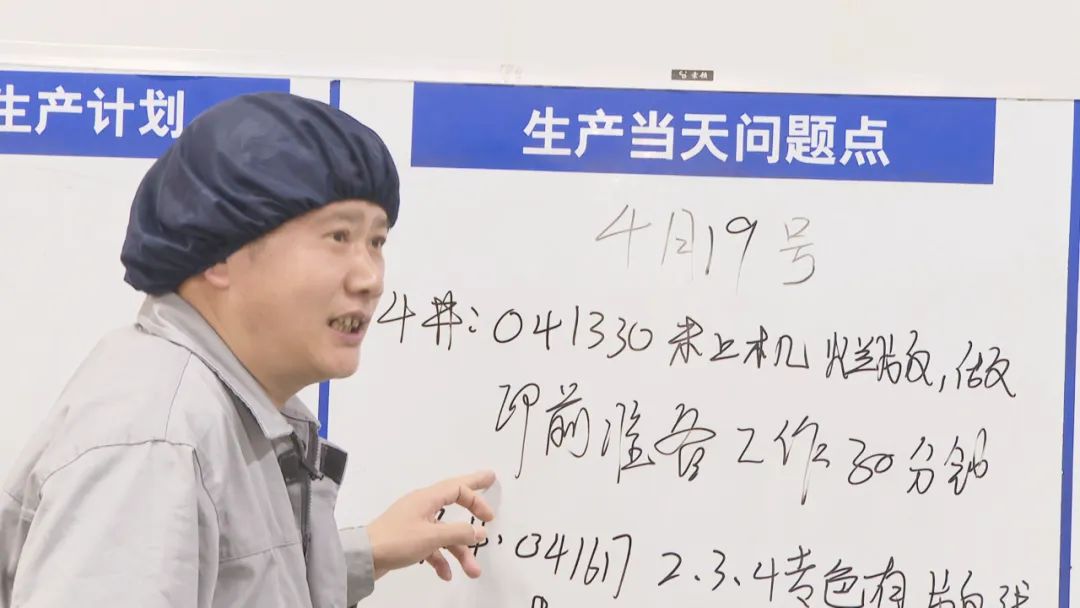 生产计划
生产当天问题点
4月19号
4#: 041330 未上机 烂版,做
印前准备工作30分钟
041617 2.3.4专色有版